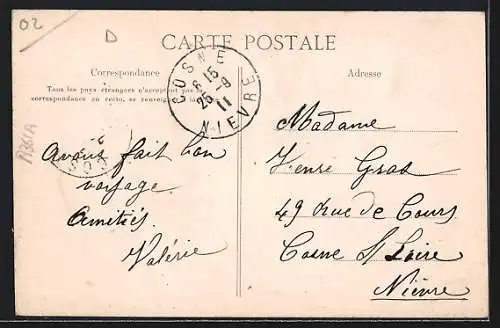 02
D
CARTE POSTALE
Correspondance
Adresse
Tous les pays étrangers n'acceptent pas la
correspondance au recto, se renseigner à la
COSNE
6 15
25 -9
11
NIEVRE
Avons fait bon
voyage
Amitiés
Valérie
Madame
Henri Gras
49 Rue de Cours
Cosne St Loire
Nièvre